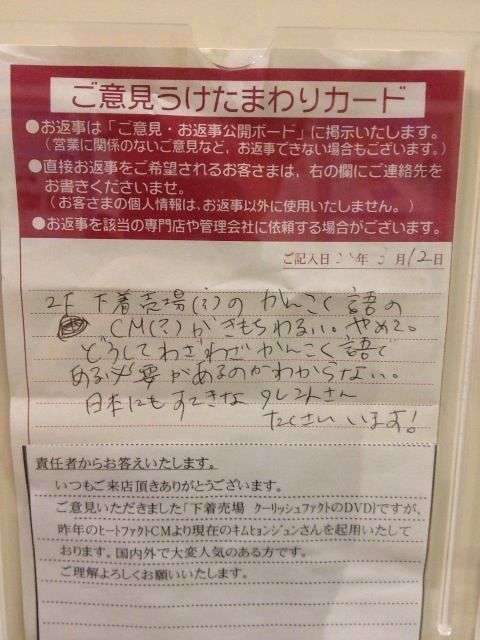 ご意見うけたまわりカード
●お返事は「ご意見・お返事公開ボード」に掲示いたします。
(営業に関係のないご意見など、お返事できない場合もございます。)
●直接お返事をご希望されるお客さまは、右の欄にご連絡先を
お書きくださいませ。
(お客さまの個人情報は、お返事以外に使用いたしません。)
●お返事を該当の専門店や管理会社に依頼する場合がございます。
ご記入日 年 月12日
2F 下着売場(?)の かんこく語の
CM(?)がきもちわるい。やめて。
どうしてわざわざ かんこく語で
ある必要があるのかわからない。
日本にもすてきな タレントさん
たくさんいます!
責任者からお答えいたします。
いつもご来店頂きありがとうございます。
ご意見いただきました「下着売場 クーリッシュファクトのDVD」ですが、
昨年のヒートファクトCMより現在のキムヒョンジュンさんを起用いたして
おります。国内外で大変人気のある方です。
ご理解よろしくお願いいたします。